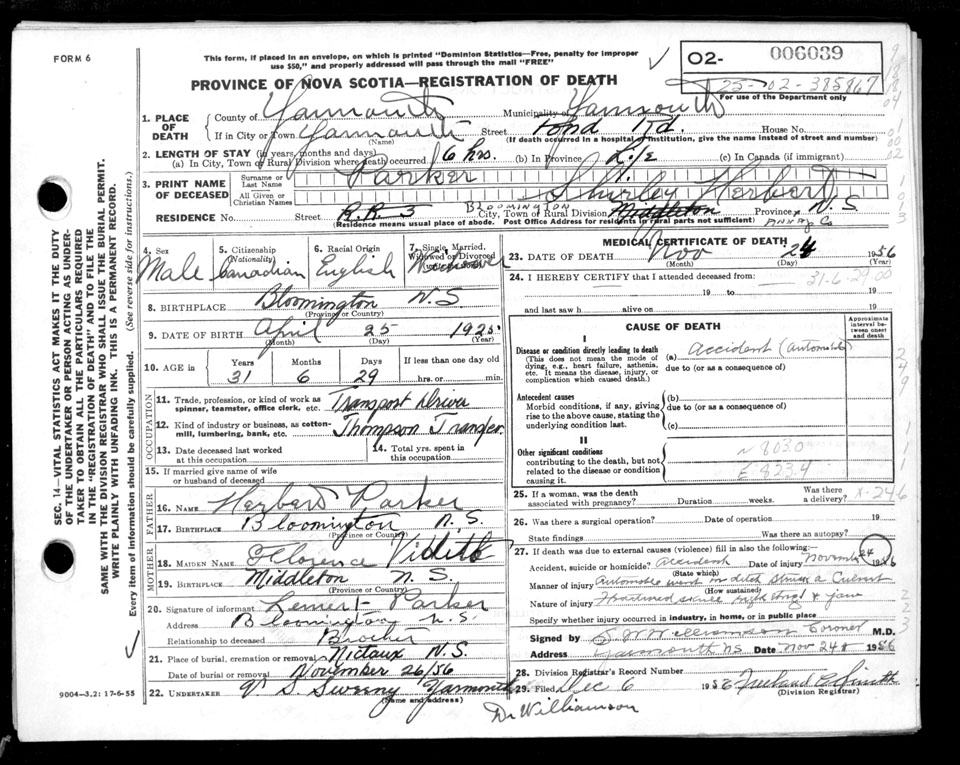 FORM 6
This form, if placed in an envelope, on which is printed "Dominion Statistics—Free, penalty for improper
use $50," and properly addressed will pass through the mail "FREE"
PROVINCE OF NOVA SCOTIA—REGISTRATION OF DEATH
02- 006039
25-02-385867
For use of the Department only
1. PLACE OF DEATH
County of Yarmouth Municipality of Yarmouth
If in City or Town Yarmouth Street Pond Rd. House No.
(Name) (If death occurred in a hospital or institution, give the name instead of street and number)
2. LENGTH OF STAY (in years, months and days)
(a) In City, Town of Rural Division where death occurred 16 hrs. (b) In Province Life (c) In Canada (if immigrant)
3. PRINT NAME OF DECEASED
Surname or Last Name Parker
All Given or Christian Names Shirley Herbert
BLOOMINGTON
RESIDENCE No. Street R.R. 3 City, Town of Rural Division Middleton Province N.S.
(Residence means usual place of abode. Post Office Address for residents in rural parts not sufficient)
4. Sex Male
5. Citizenship (Nationality) Canadian
6. Racial Origin English
7. Single, Married, Widowed or Divorced
8. BIRTHPLACE Bloomington N.S
(Province or Country)
9. DATE OF BIRTH April 25 1925
(Month) (Day) (Year)
10. AGE in Years Months Days If less than one day old
31 6 29 hrs. or min.
OCCUPATION
11. Trade, profession, or kind of work as
spinner, teamster, office clerk, etc. Transport Driver
12. Kind of industry or business, as cotton-
mill, lumbering, bank, etc. Thompson Transfer
13. Date deceased last worked at this occupation
14. Total yrs. spent in this occupation
15. If married give name of wife
or husband of deceased
FATHER
16. NAME Herbert Parker
17. BIRTHPLACE Bloomington N.S.
(Province or Country)
MOTHER
18. MAIDEN NAME Florence Viditb
19. BIRTHPLACE Middleton N.S.
(Province or Country)
20. Signature of informant Parker
Address Bloomington N.S
Relationship to deceased Brother
21. Place of burial, cremation or removal Nictaux N.S.
Date of burial or removal November 26/56
22. UNDERTAKER V S Sweeny Yarmouth
(Name and address)
MEDICAL CERTIFICATE OF DEATH
23. DATE OF DEATH Nov 24 1956
(Month) (Day) (Year)
24. I HEREBY CERTIFY that I attended deceased from:
31-6-29 00
19 to 19
and last saw h alive on 19
CAUSE OF DEATH
Approximate interval between onset and death
I
Disease or condition directly leading to death (a) accident (automobile)
(This does not mean the mode of dying, e.g., heart failure, asthenia, etc. It means the disease, injury, or complication which caused death.)
due to (or as a consequence of)
Antecedent causes (b)
Morbid conditions, if any, giving rise to the above cause, stating the underlying condition last.
due to (or as a consequence of)
(c)
II
Other significant conditions
contributing to the death, but not related to the disease or condition causing it.
N 8030
E 8234
25. If a woman, was the death associated with pregnancy? Duration weeks. Was there a delivery?
X-246
26. Was there a surgical operation? Date of operation 19
State findings Was there an autopsy?
27. If death was due to external causes (violence) fill in also the following:—
Accident, suicide or homicide? accident Date of injury November 24 1956
(State which)
Manner of injury Automobile went in ditch struck a Culvert
(How sustained)
Nature of injury Fractured skull & jaw
Specify whether injury occurred in industry, in home, or in public place
Signed by Williamson Coroner M.D.
Address Yarmouth NS Date Nov 24 1956
28. Division Registrar's Record Number
29. Filed Dec 6 1956
(Division Registrar)
Dr Williamson
SEC. 14—VITAL STATISTICS ACT MAKES IT THE DUTY
OF THE UNDERTAKER OR PERSON ACTING AS UNDER-
TAKER TO OBTAIN ALL THE PARTICULARS REQUIRED
IN THE "REGISTRATION OF DEATH" AND TO FILE THE
SAME WITH THE DIVISION REGISTRAR WHO SHALL ISSUE THE BURIAL PERMIT.
WRITE PLAINLY WITH UNFADING INK. THIS IS A PERMANENT RECORD.
Every item of information should be carefully supplied. (See reverse side for instructions.)
9004-3,2: 17-6-55